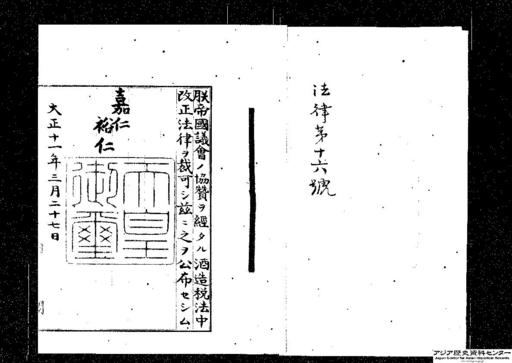 法律第十六號
朕帝國議會ノ協贊ヲ經タル酒造税法中
改正法律ヲ裁可シ茲ニ之ヲ公布セシム
嘉仁
裕仁
天皇
御璽
大正十一年三月二十七日
アジア歴史資料センター
Japan Center for Asian Historical Records